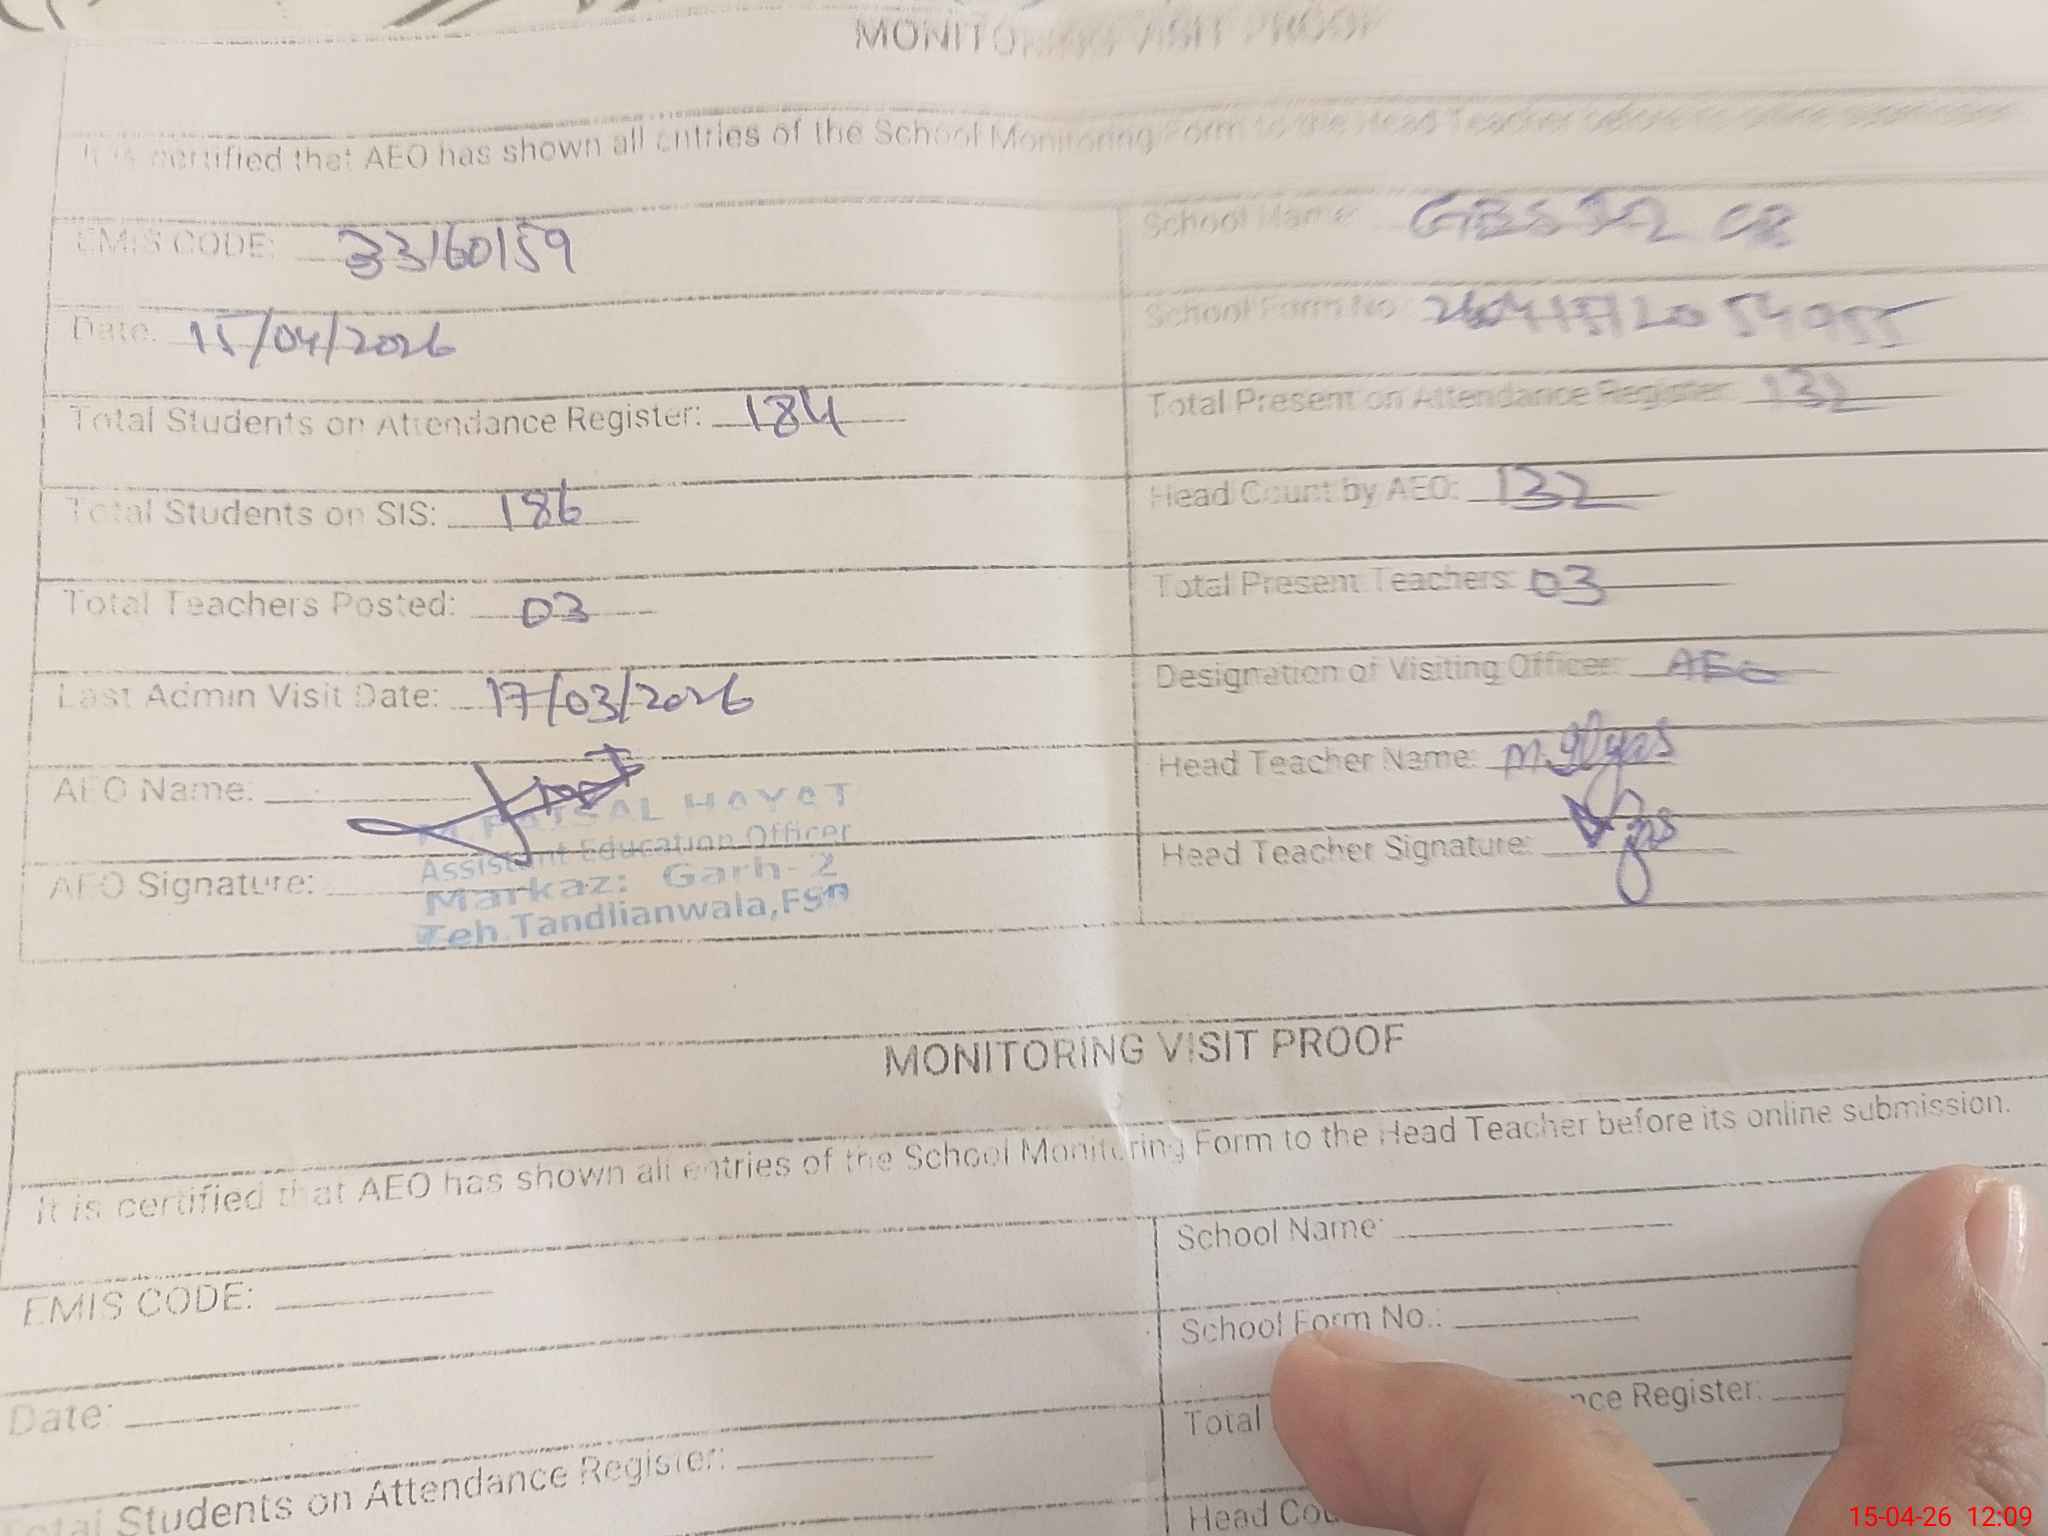 MONITORING VISIT PROOF
It is certified that AEO has shown all entries of the School Monitoring Form to the Head Teacher before its online submission.
EMIS CODE: 33160159
School Name:
Date: 15/04/2026
School Form No.:
Total Students on Attendance Register: 184
Total Present on Attendance Register: 132
Total Students on SIS: 186
Head Count by AEO: 132
Total Teachers Posted: 03
Total Present Teachers: 03
Last Admin Visit Date: 17/03/2026
Designation of Visiting Officer: AEO
AEO Name:
Head Teacher Name: M. Ilyas
M. FAISAL HAYAT
Assistant Education Officer
AEO Signature:
Head Teacher Signature:
Markaz: Garh-2
Teh.Tandlianwala,Fsn
MONITORING VISIT PROOF
It is certified that AEO has shown all entries of the School Monitoring Form to the Head Teacher before its online submission.
EMIS CODE:
School Name:
Date:
School Form No.:
Total Students on Attendance Register:
Total nce Register:
Head Cou
15-04-26 12:09